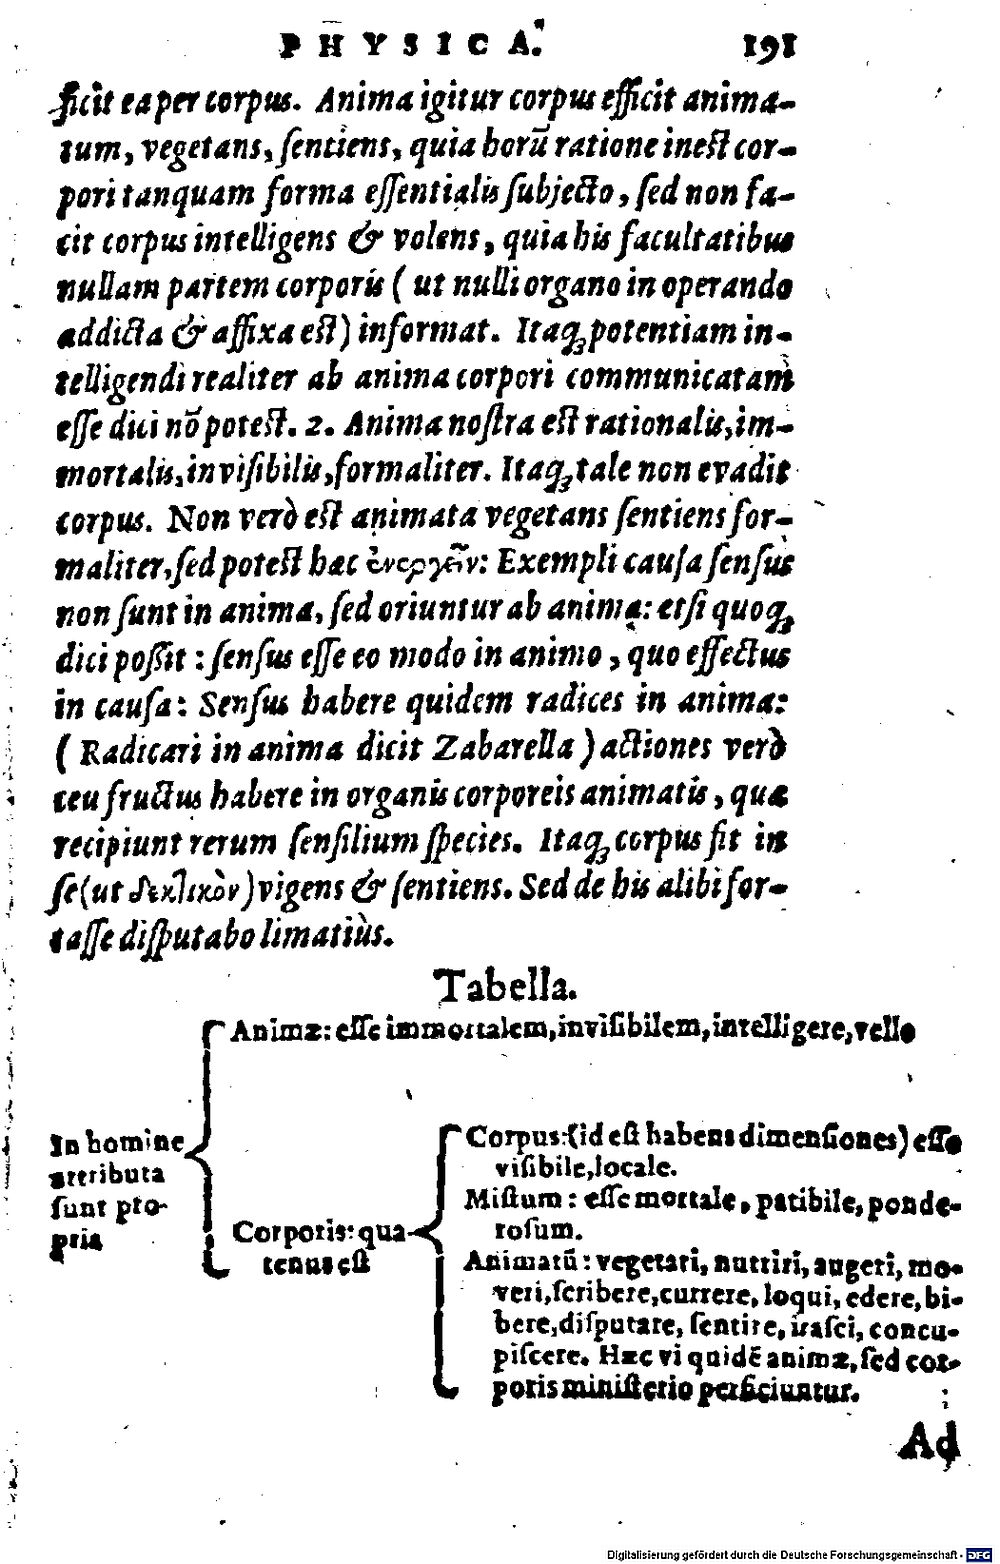 PHYSICA. 191
ficit ea per corpus. Anima igitur corpus efficit anima-
tum, vegetans, ſentiens, quia horũ ratione ineſt cor-
pori tanquam forma eſſentialis ſubjecto, ſed non fa-
cit corpus intelligens & volens, quia his facultatibus
nullam partem corporis ( ut nulli organo in operando
addicta & affixa eſt) informat. Itaq; potentiam in-
telligendi realiter ab anima corpori communicatam
eſſe dici nõ poteſt. 2. Anima noſtra eſt rationalis, im-
mortalis, inviſibilis, formaliter. Itaq; tale non evadit
corpus. Non verò eſt animata vegetans ſentiens for-
maliter, ſed poteſt hæc ἐνεργεῖν: Exempli cauſa ſenſus
non ſunt in anima, ſed oriuntur ab anima: etſi quoq;
dici poſſit : ſenſus eſſe eo modo in animo, quo effectus
in cauſa: Senſus habere quidem radices in anima:
( Radicari in anima dicit Zabarella ) actiones verò
ceu fructus habere in organis corporeis animatis, quæ
recipiunt rerum ſenſilium ſpecies. Itaq; corpus fit in
ſe (ut δεκτικὸν) vigens & ſentiens. Sed de his alibi for-
taſſe diſputabo limatiùs.
Tabella.
In homine
attributa
ſunt pro-
pria
Animæ: eſſe immortalem, inviſibilem, intelligere, velle
Corporis: qua-
tenus eſt
Corpus: (id eſt habens dimenſiones) eſſe
viſibile, locale.
Miſtum : eſſe mortale, patibile, ponde-
roſum.
Animatũ : vegetari, nutriri, augeri, mo-
veri, ſcribere, currere, loqui, edere, bi-
bere, diſputare, ſentire, iraſci, concu-
piſcere. Hæc vi quidẽ animæ, ſed cor-
poris miniſterio perficiuntur.
Ad
Digitalisierung gefördert durch die Deutsche Forschungsgemeinschaft - DFG